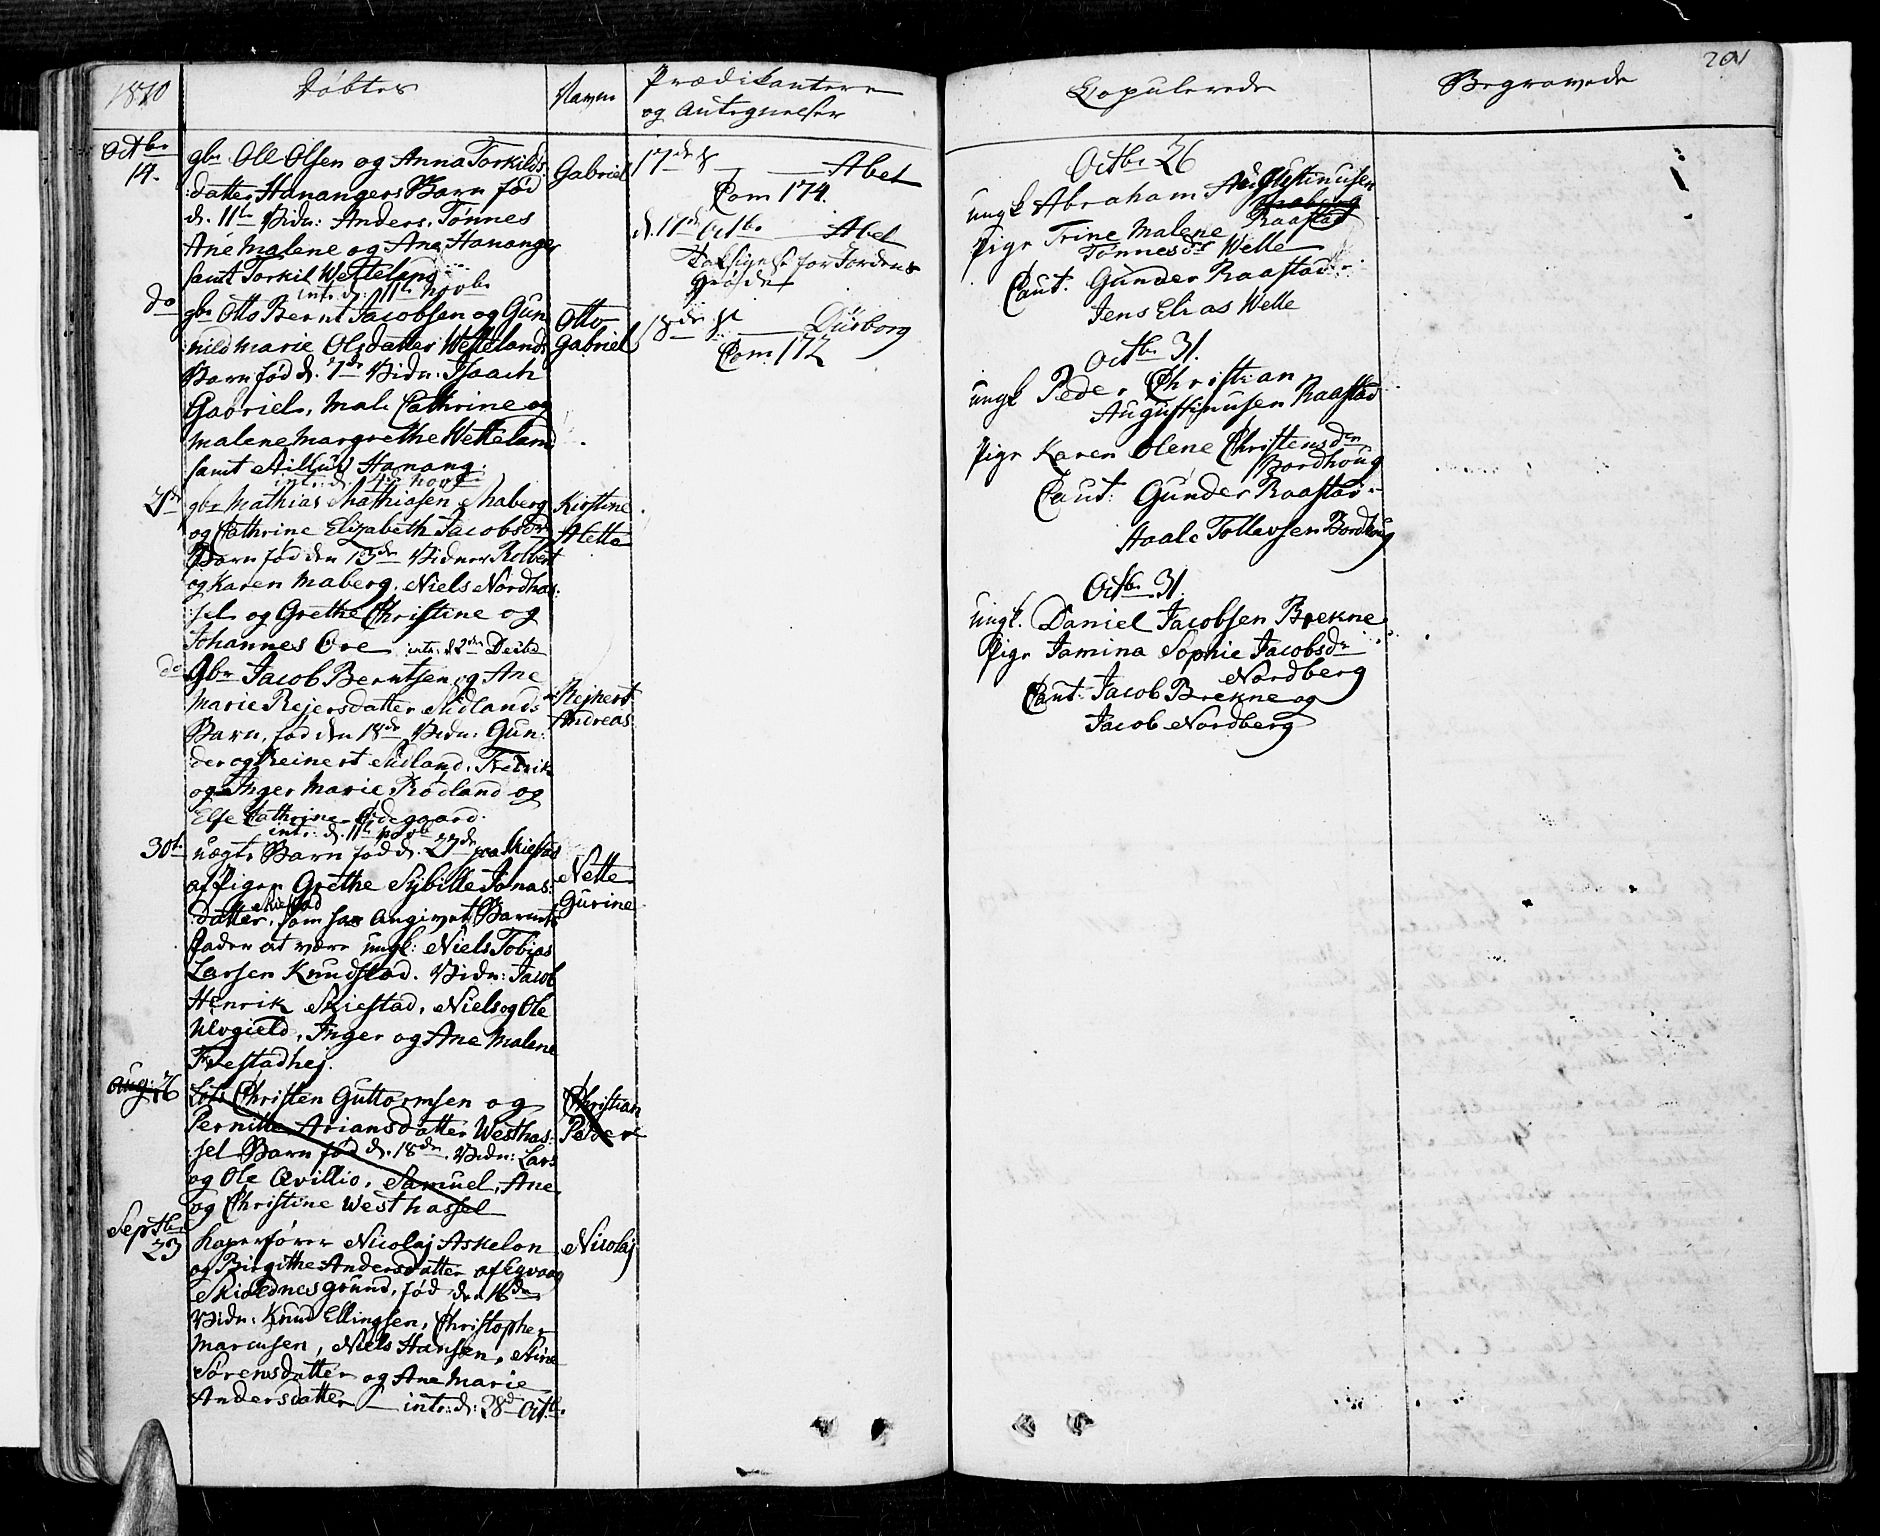 1810
Døbte
Navn
Prædikantere
og Antegnelser
Octbr
14.
gbr Ole Olsen og Anna Torkilds
datter Hananger Barn fød
d. 11te Vidn: Anders, Tønnes
Ane Malene og Ane Hananger
samt Torkil Wetteland
intr: d. 11te Novbr
Gabriel
do
gbr Otto Bernt Jacobsen og Gun
nild Marie Olsdatter Wettelands
Barn fød d. 7de Vidn: Isaach
Gabriel, Mal. Cathrine og
Malene Margrethe Wetteland
samt Hanang.
intr: d. Novbr
Otto
Gabriel
21de
gbr Mathias Mathiasen Maberg
og Cathrine Elizabeth Jacobsdr
Barn fød den 13de Vidner Rolbert
og Karen Maberg, Niels Nordhas:
:sel og Grethe Christine og
Johannes Ore intr: d. 2den Decbr
Kirstine
Aletta
do
Gbr Jacob Berntsen og Ane
Marie Rejersdatter Sudlands
Barn, fød den 18de Vidn: Gun:
der og Reinert Sudland, Fredrik
og Inger Marie Rødland og
Else Cathrine Ødegaard.
intr: d. 11te Novbr
Rejnert
Andreas
30te
uægte Barn fød d. 27de paa Skiestad
af Pigen Grethe Sybille Jonas:
Skiestad
datter, som har Angivet Barnets
Fader at være ungk: Niels Tobias
Larsen Knudstad. Vidn: Jacob
Henrik Skiestad, Niels og Ole
Ulvgield, Inger og Ane Malene
Frestadhej.
Nette
Gurine
Aug: 26
Lods Christen Guttormsen og
Pernille Ariansdatter Westhas:
:sel Barn fød d. 18de. Vidn: Lars
og Ole Qvillio, Samuel, Ane
og Christine Westhassel
Christian
Peder
Septbr
23
Kaperfører Nicolaj Askelon
og Birgithe Andersdatter af Egvaag
Skioldnes grund, fød den 16de
Vidn: Knud Ellingsen, Christopher
Marcusen, Niels Hansen, Stine
Sørensdatter og Ane Marie
Andersdatter — intr: d: 28de Octbr.
Nicolaj
17de S — Abel
Com 174.
d. 17de Octbr — Abel
Taksigelse for Jordens
Grøde
18de S — Düborg
Com 172
201
Copulerede
Begravede
Octbr 26
ungk Abraham Augustinusen
Raastad
Pige Trine Malene
Tønnesdr Welle
Caut. Gunder Raastad
Jens Elias Welle
Octbr 31.
ungk Peder Christian
Augustinusen Raastad
Pige Karen Olene Christensdr
Bordhoug
Caut: Gunder Raastad
Haale Tollevsen Bordhoug
Octbr 31.
ungk. Daniel Jacobsen Brekne
Pige Jamina Sophie Jacobsdr
Nordberg
Caut: Jacob Brekne og
Jacob Nordberg